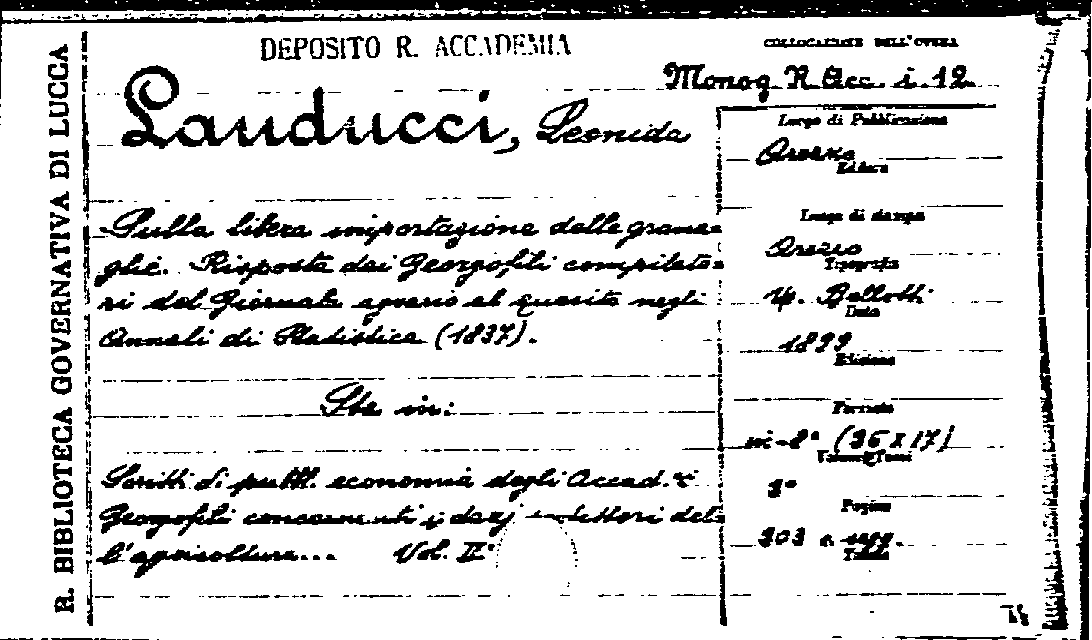 R. BIBLIOTECA GOVERNATIVA DI LUCCA
DEPOSITO R. ACCADEMIA
COLLOCAZIONE DELL'OPERA
Monog. R. Acc. i. 12
Landucci, Leonida
Sulla libera importazione delle grana=
glie. Risposta dei Georgofili compilato=
ri del Giornale agrario al quesito negli
Annali di Statistica (1837).
Sta in:
Scritti di pubbl. economia degli Accad.
Georgofili concernenti i dazj del=
l'agricoltura... Vol. II°
Luogo di Pubblicazione
Arezzo
Editore
Luogo di stampa
Arezzo
Tipografia
U. Bellotti
Data
1899
Edizione
Formato
in-8° (25 x 17)
Volume o Tomi
2°
Pagine
303 e segg.
Tavole